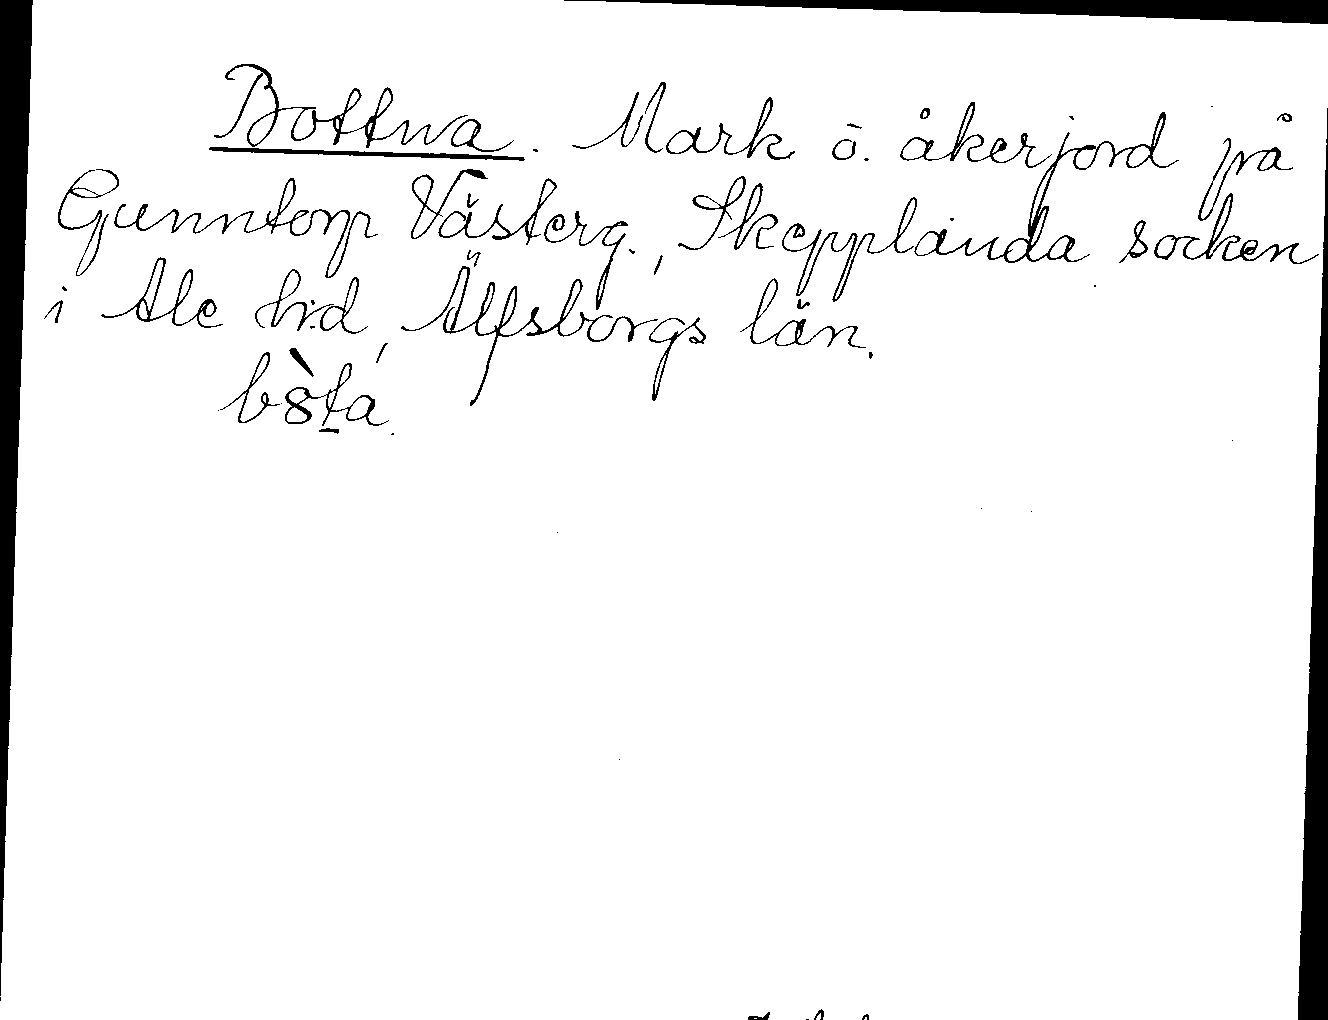 Bottna. Mark o. åkerjord på
Gunntorp Västerg., Skepplanda socken
i Ale h:d, Älfsborgs län.